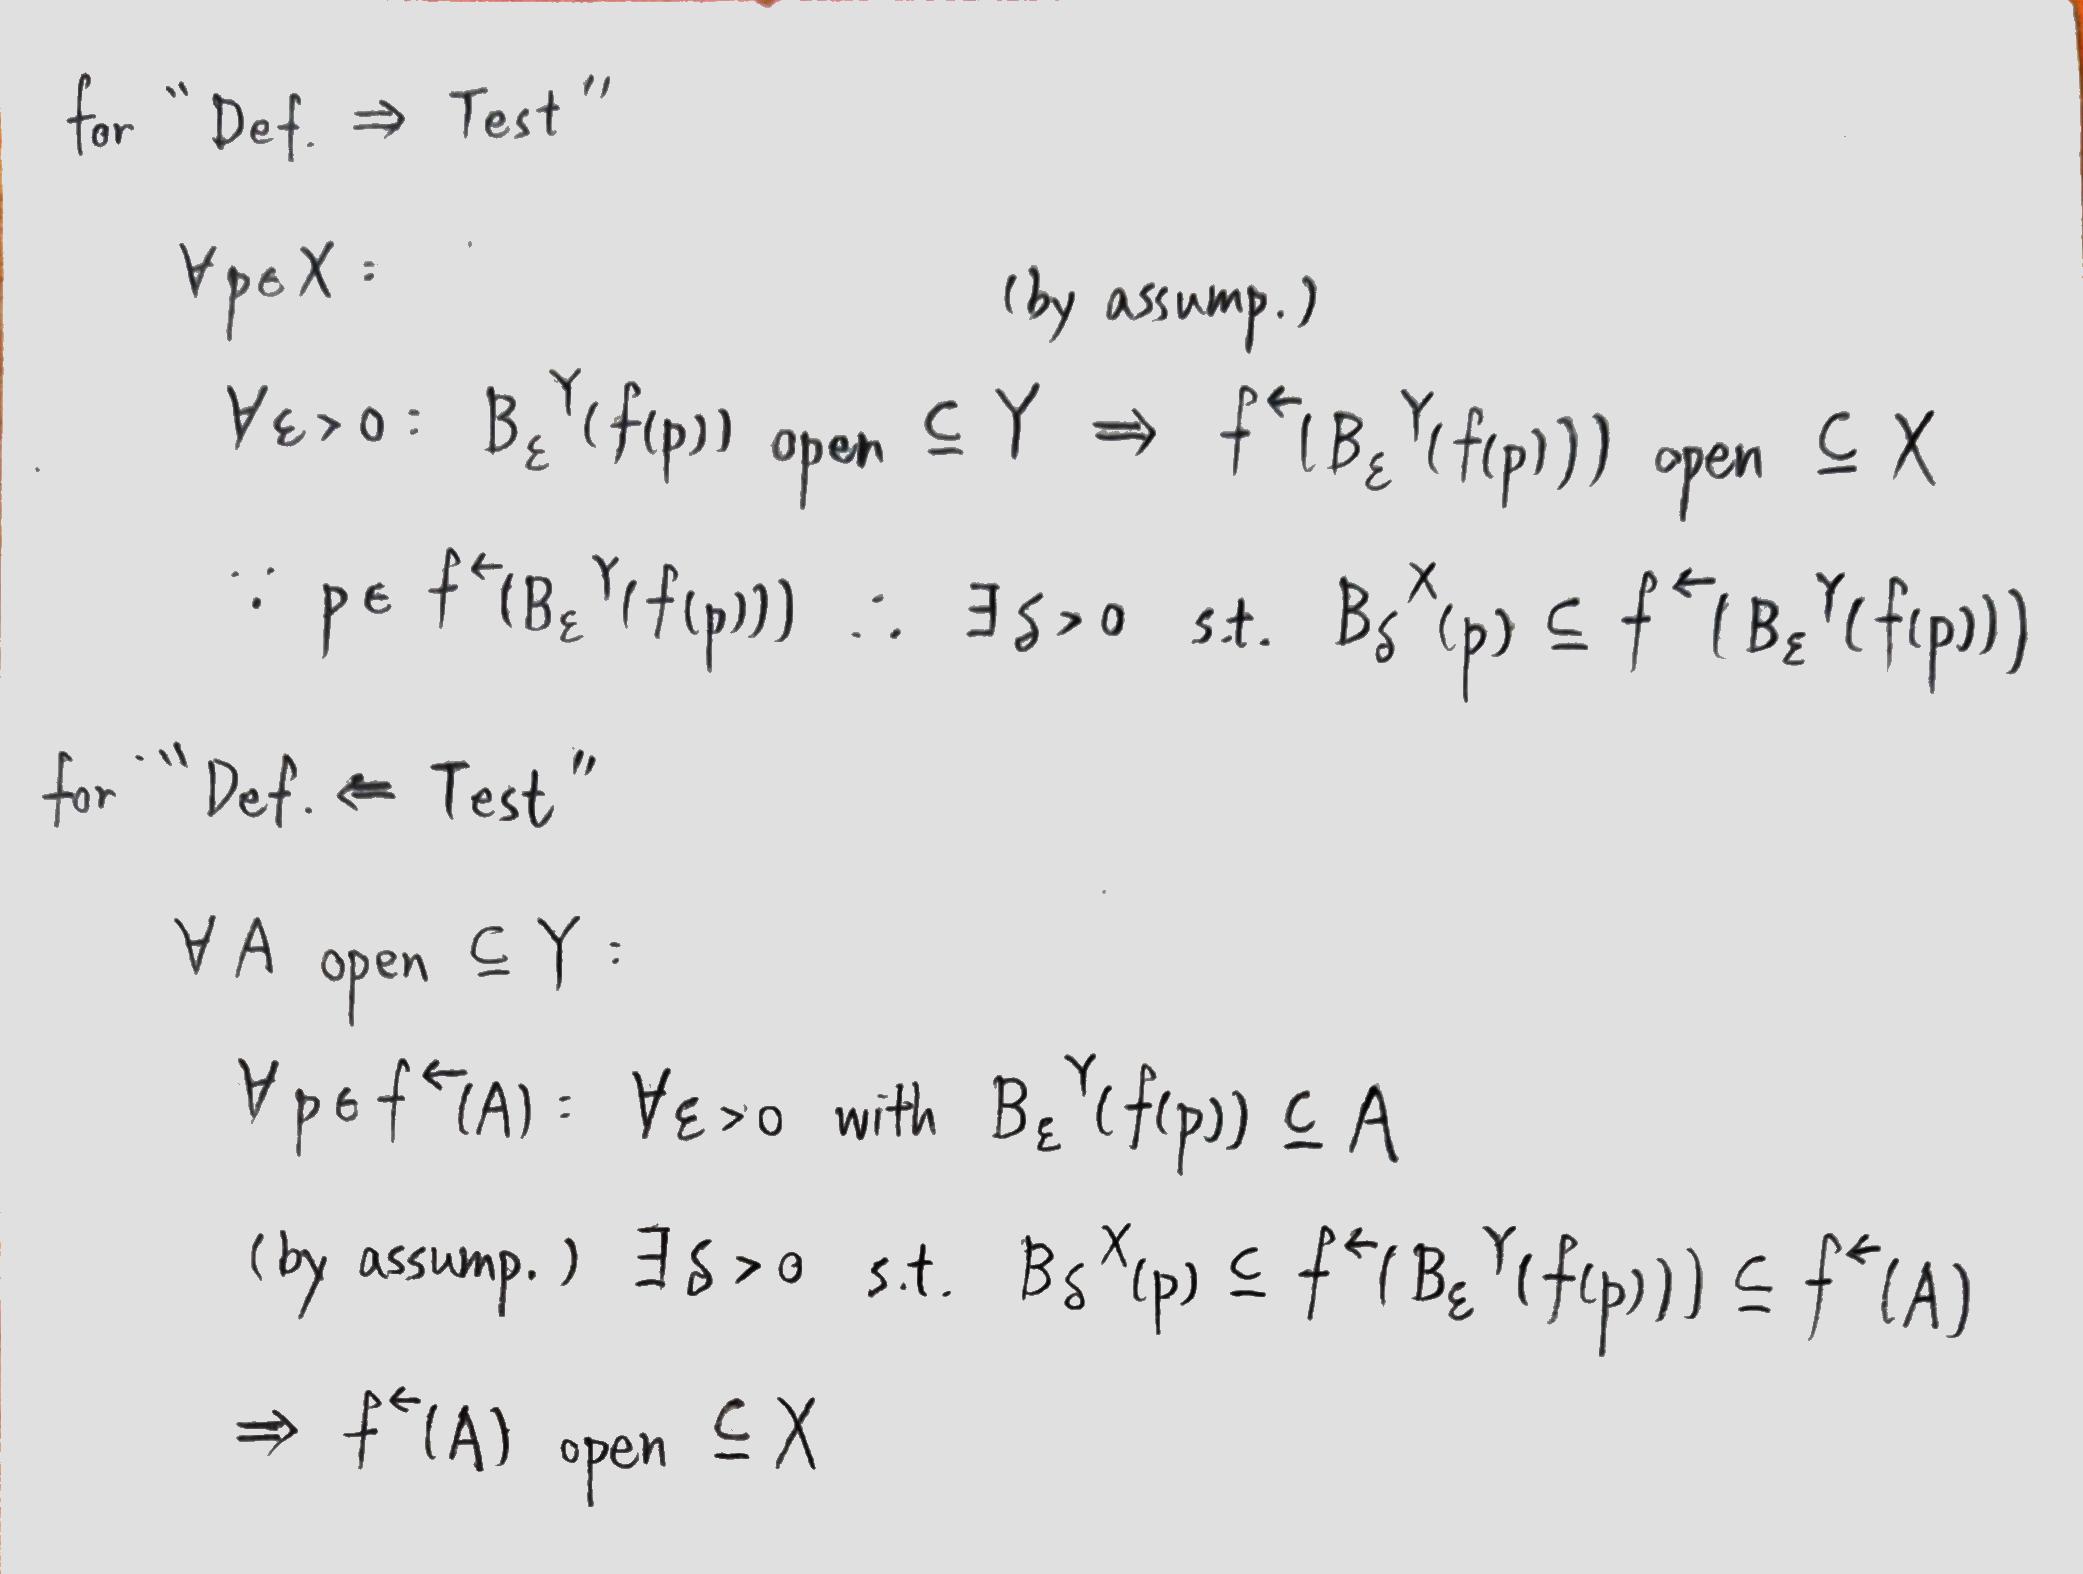 for "Def. ⇒ Test"
∀p∈X:
(by assump.)
∀ε>0: B_ε^Y(f(p)) open ⊆ Y ⇒ f^←(B_ε^Y(f(p))) open ⊆ X
∵ p∈ f^←(B_ε^Y(f(p))) ∴ ∃δ>0 s.t. B_δ^X(p) ⊆ f^←(B_ε^Y(f(p)))
for "Def. ⇐ Test"
∀A open ⊆ Y:
∀p∈f^←(A): ∀ε>0 with B_ε^Y(f(p)) ⊆ A
(by assump.) ∃δ>0 s.t. B_δ^X(p) ⊆ f^←(B_ε^Y(f(p))) ⊆ f^←(A)
⇒ f^←(A) open ⊆ X